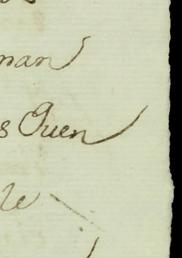 man
s Ouen
le